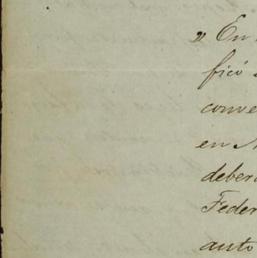 " En
ficó
conve
en
deber
Feder
auto